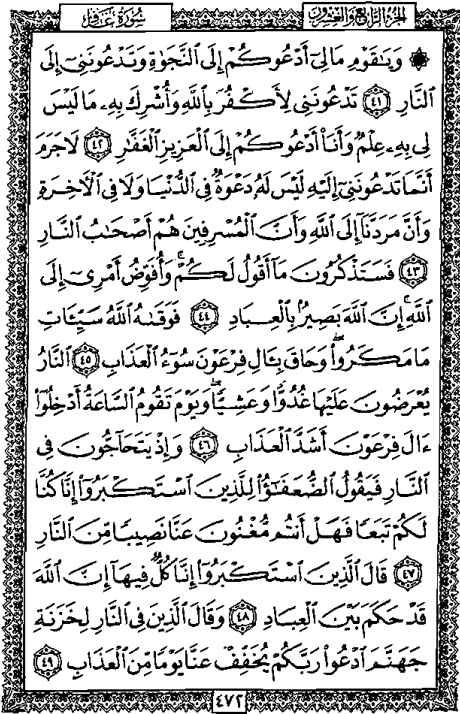 الجزء الرابع والعشرون
سورة غافر
۞ وَيَٰقَوْمِ مَا لِىٓ أَدْعُوكُمْ إِلَى ٱلنَّجَوٰةِ وَتَدْعُونَنِىٓ إِلَى
ٱلنَّارِ ٤١ تَدْعُونَنِى لِأَكْفُرَ بِٱللَّهِ وَأُشْرِكَ بِهِۦ مَا لَيْسَ
لِى بِهِۦ عِلْمٌ وَأَنَا۠ أَدْعُوكُمْ إِلَى ٱلْعَزِيزِ ٱلْغَفَّٰرِ ٤٢ لَا جَرَمَ
أَنَّمَا تَدْعُونَنِىٓ إِلَيْهِ لَيْسَ لَهُۥ دَعْوَةٌ فِى ٱلدُّنْيَا وَلَا فِى ٱلْأَخِرَةِ
وَأَنَّ مَرَدَّنَآ إِلَى ٱللَّهِ وَأَنَّ ٱلْمُسْرِفِينَ هُمْ أَصْحَٰبُ ٱلنَّارِ
٤٣ فَسَتَذْكُرُونَ مَآ أَقُولُ لَكُمْ ۚ وَأُفَوِّضُ أَمْرِىٓ إِلَى
ٱللَّهِ ۚ إِنَّ ٱللَّهَ بَصِيرٌۢ بِٱلْعِبَادِ ٤٤ فَوَقَىٰهُ ٱللَّهُ سَيِّـَٔاتِ
مَا مَكَرُوا۟ ۖ وَحَاقَ بِـَٔالِ فِرْعَوْنَ سُوٓءُ ٱلْعَذَابِ ٤٥ ٱلنَّارُ
يُعْرَضُونَ عَلَيْهَا غُدُوًّا وَعَشِيًّا ۖ وَيَوْمَ تَقُومُ ٱلسَّاعَةُ أَدْخِلُوٓا۟
ءَالَ فِرْعَوْنَ أَشَدَّ ٱلْعَذَابِ ٤٦ وَإِذْ يَتَحَآجُّونَ فِى
ٱلنَّارِ فَيَقُولُ ٱلضُّعَفَٰٓؤُا۟ لِلَّذِينَ ٱسْتَكْبَرُوٓا۟ إِنَّا كُنَّا
لَكُمْ تَبَعًا فَهَلْ أَنتُم مُّغْنُونَ عَنَّا نَصِيبًا مِّنَ ٱلنَّارِ
٤٧ قَالَ ٱلَّذِينَ ٱسْتَكْبَرُوٓا۟ إِنَّا كُلٌّ فِيهَآ إِنَّ ٱللَّهَ
قَدْ حَكَمَ بَيْنَ ٱلْعِبَادِ ٤٨ وَقَالَ ٱلَّذِينَ فِى ٱلنَّارِ لِخَزَنَةِ
جَهَنَّمَ ٱدْعُوا۟ رَبَّكُمْ يُخَفِّفْ عَنَّا يَوْمًا مِّنَ ٱلْعَذَابِ ٤٩
٤٧٢